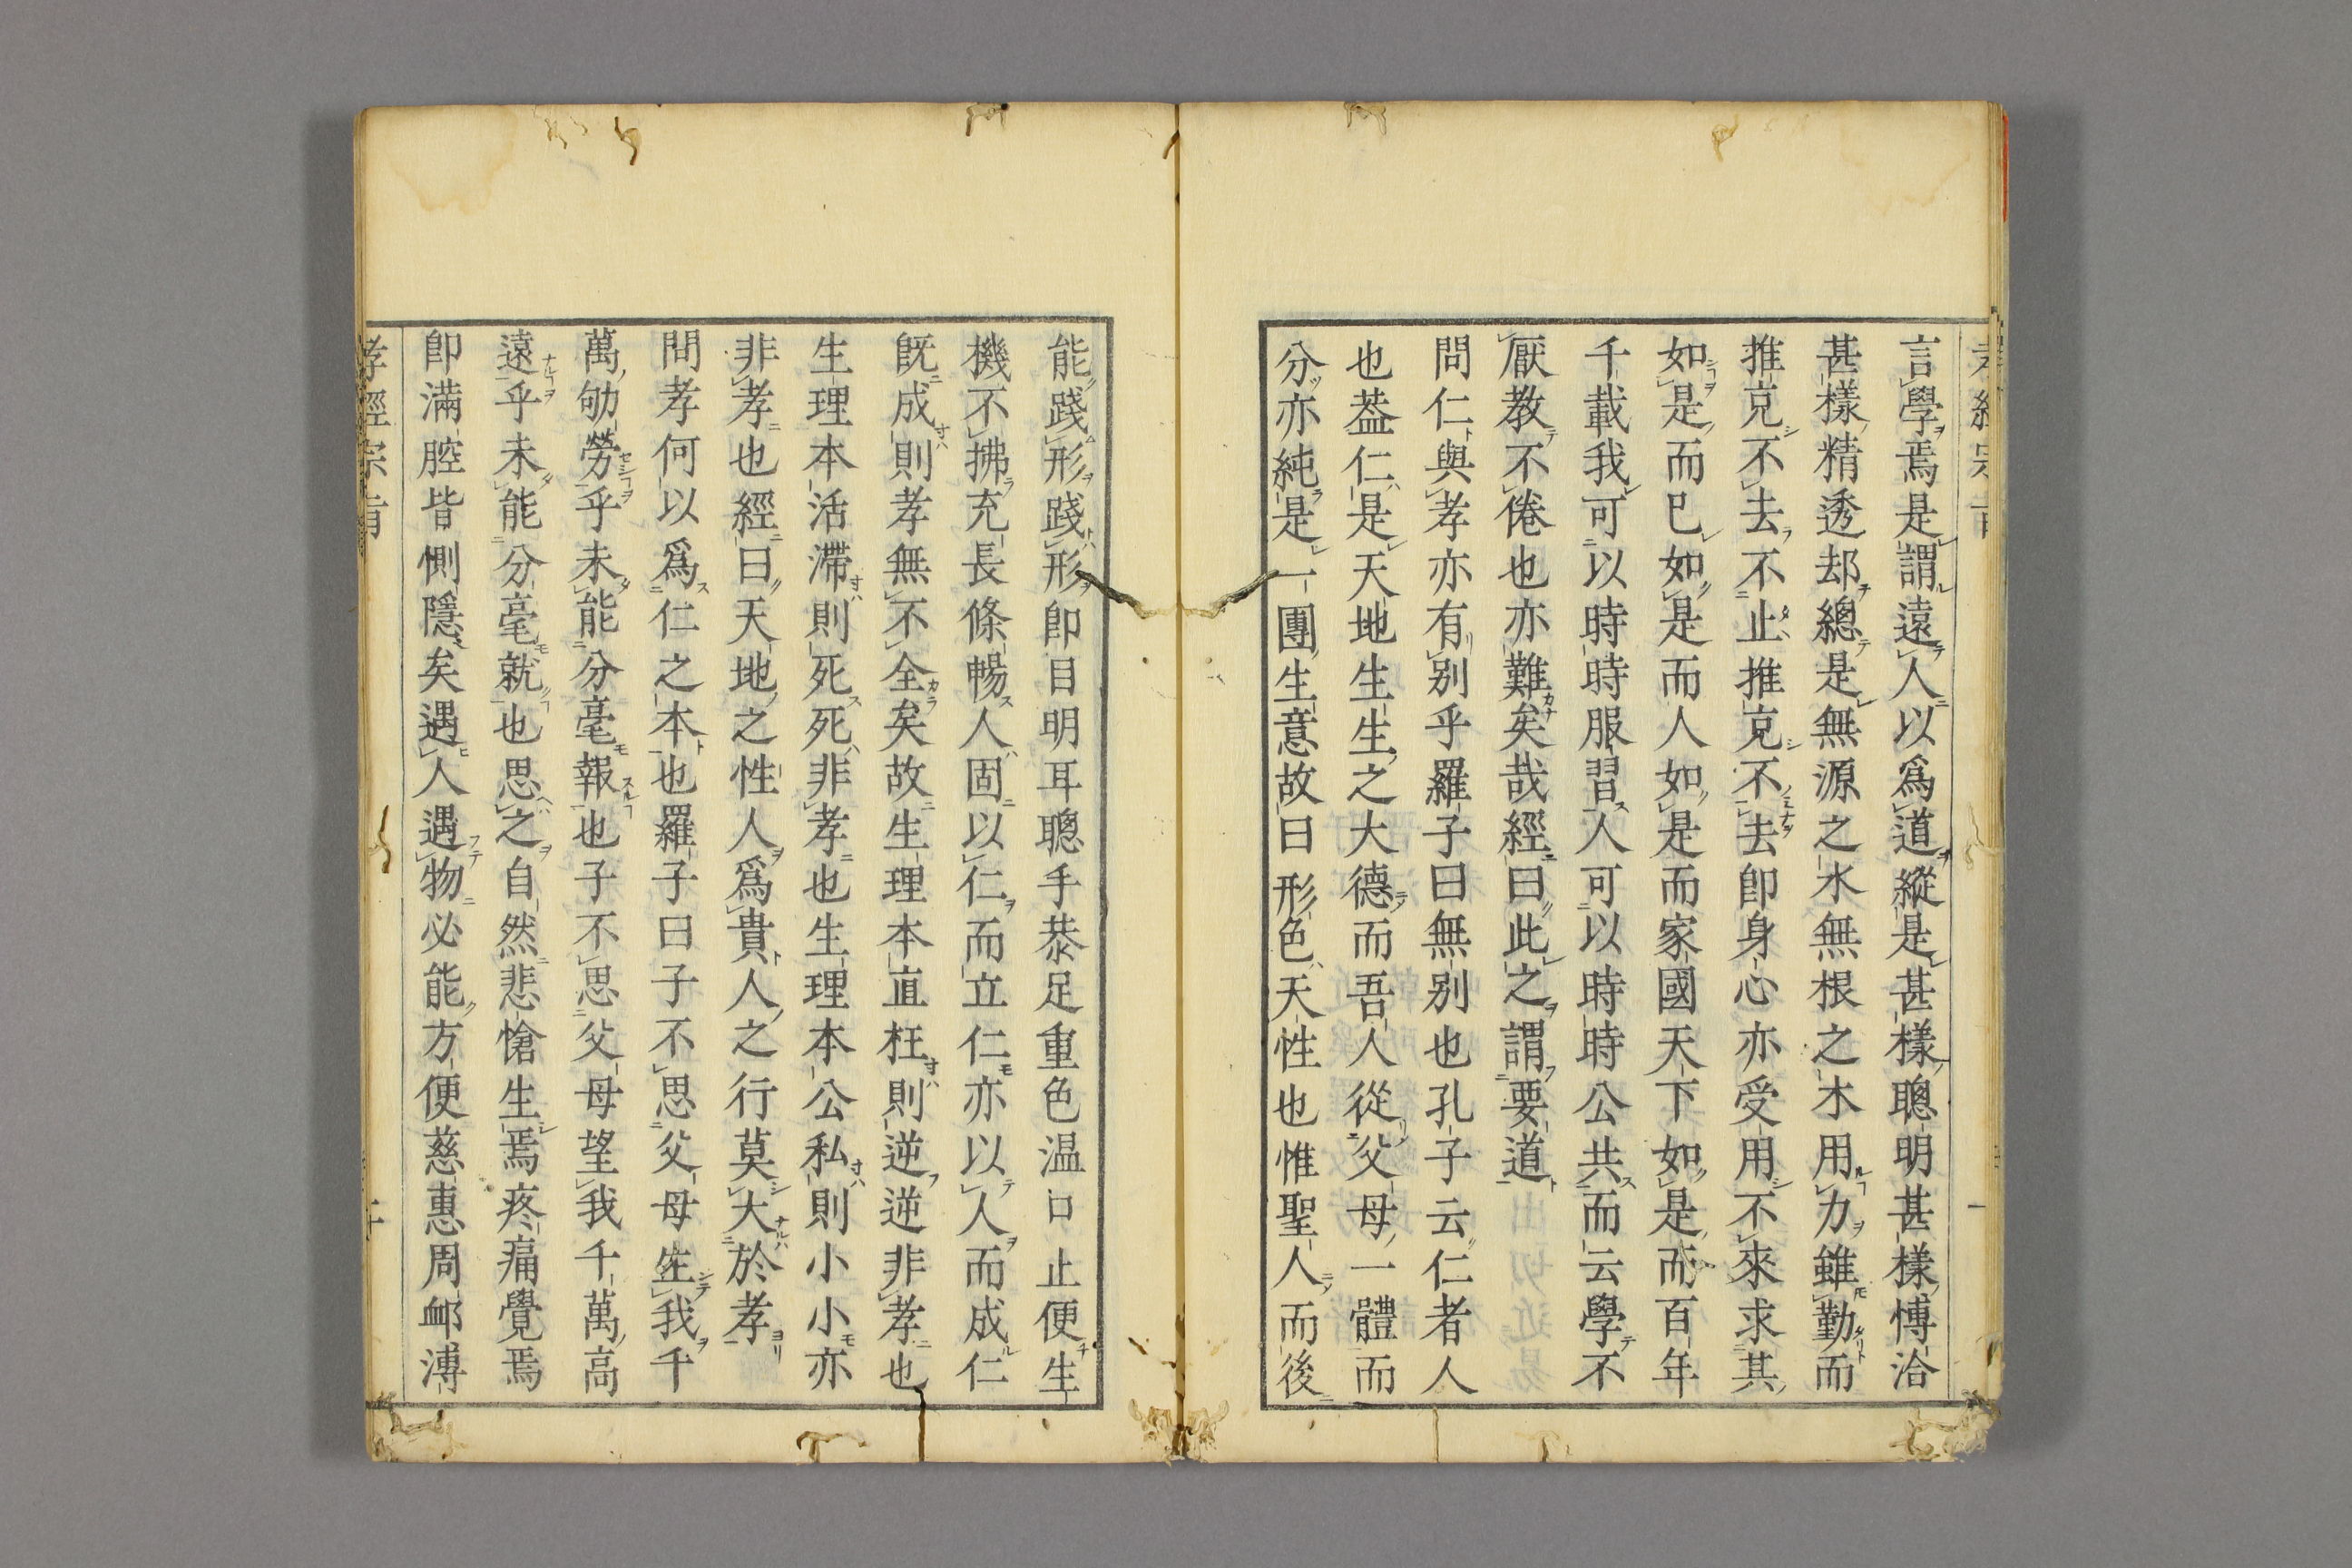 言學焉是謂遠人以爲道縱是甚樣聰明甚樣愽洽
甚樣精透却總是無源之水無根之木用力雖勤而
推克不去不止推克不去卽身心亦受用不來求其
如是而巳如是而人如是而家國天下如是而百年
千載我可以時時服習人可以時時公共而云學不
厭教不倦也亦難矣哉經曰此之謂要道
問仁與孝亦有别乎羅子曰無别也孔子云仁者人
也葢仁是天地生生之大德而吾人從父母一體而
分亦純是一團生意故曰形色天性也惟聖人而後
能踐形踐形卽目明耳聰手恭足重色温口止便生
機不拂充長條暢人固以仁而立仁亦以人而成仁
旣成則孝無不全矣故生理本直枉則逆逆非孝也
生理本活滯則死死非孝也生理本公私則小小亦
非孝也經曰天地之性人爲貴人之行莫大於孝
問孝何以爲仁之本也羅子曰子不思父母生我千
萬劬勞乎未能分毫報也子不思父母望我千萬高
遠乎未能分毫就也思之自然悲愴生焉疼痛覺焉
卽滿腔皆惻隱矣遇人遇物必能方便慈惠周卹溥
孝經宗旨